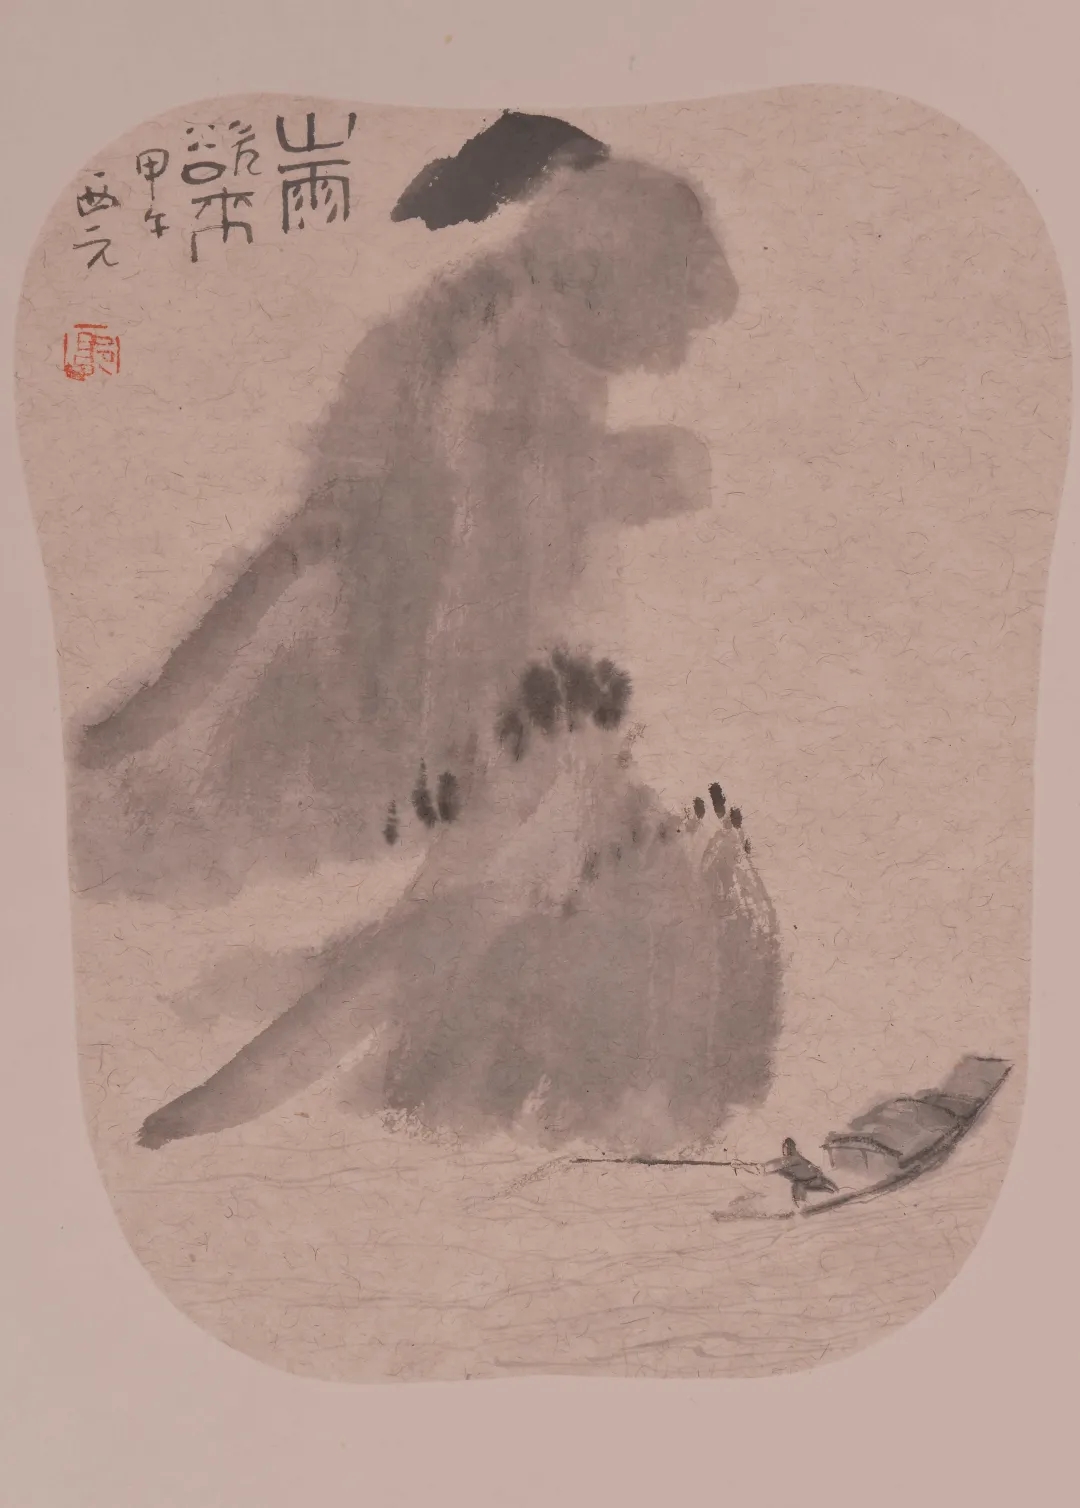 山雨
欲來
甲午
西元